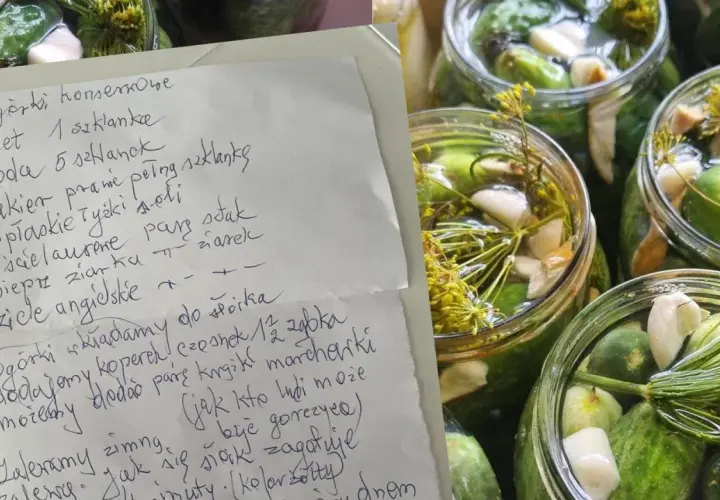 górki konserwowe
et 1 szklanka
oda 5 szklanek
kier prawie pełną szklankę
płaskie łyżki soli
ście laurowe parę sztuk
ieprz ziarnka -"- ziarek
ziele angielskie -"- -"-
ogórki wkładamy do słoika
dodajemy koperek, czosnek 1 1/2 ząbka
możemy dodać parę krążki marchewki
(jak kto lubi może
być gorczyca)
Zalewamy zimną
jak się słoik zagotuje
minuty (kolor żółty)
dnem